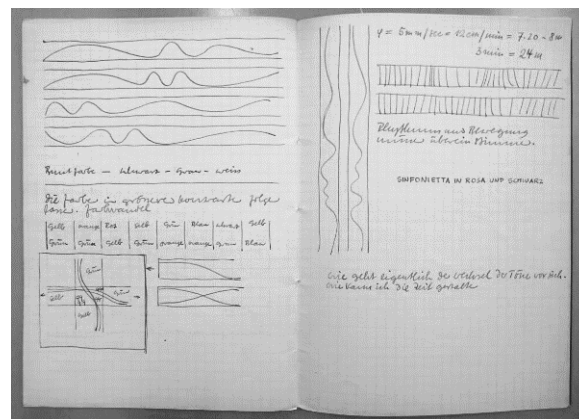 Buntfarbe — schwarz — grau — weiss
die Farbe in grössere kontraste folge
töne. farbwandel
gelb orange Rot gelb Grün Blau schwarz gelb
Grün Grün gelb Grün orange orange grau Blau
Grün
gelb Grün
gelb
3 min = 24 m
Rhythmus aus Bewegung
SINFONIETTA IN ROSA UND SCHWARZ
wie geht eigentlich der wechsel der Töne vor sich.
wie kann ich die Zeit gestalte